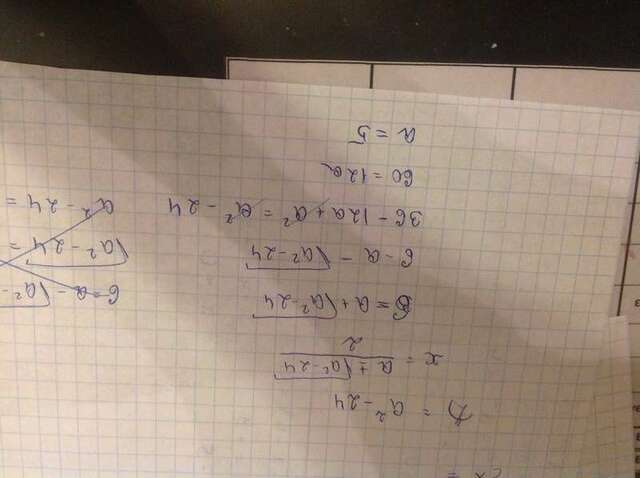 D = a² - 24
x = (a ± √(a² - 24)) / 2
6 = a + √(a² - 24)
6 - a - √(a² - 24)
36 - 12a + a² = a² - 24
60 = 12a
a = 5
6 = a - √(a² -
√(a² - 24 =
a² - 24 =